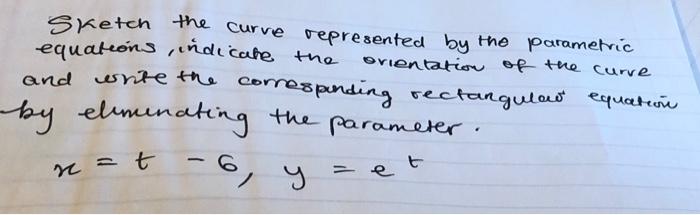 Sketch the curve represented by the parametric
equations, indicate the orientation of the curve
and write the corresponding rectangular equation
by eliminating the parameter.
x = t - 6, y = e^t